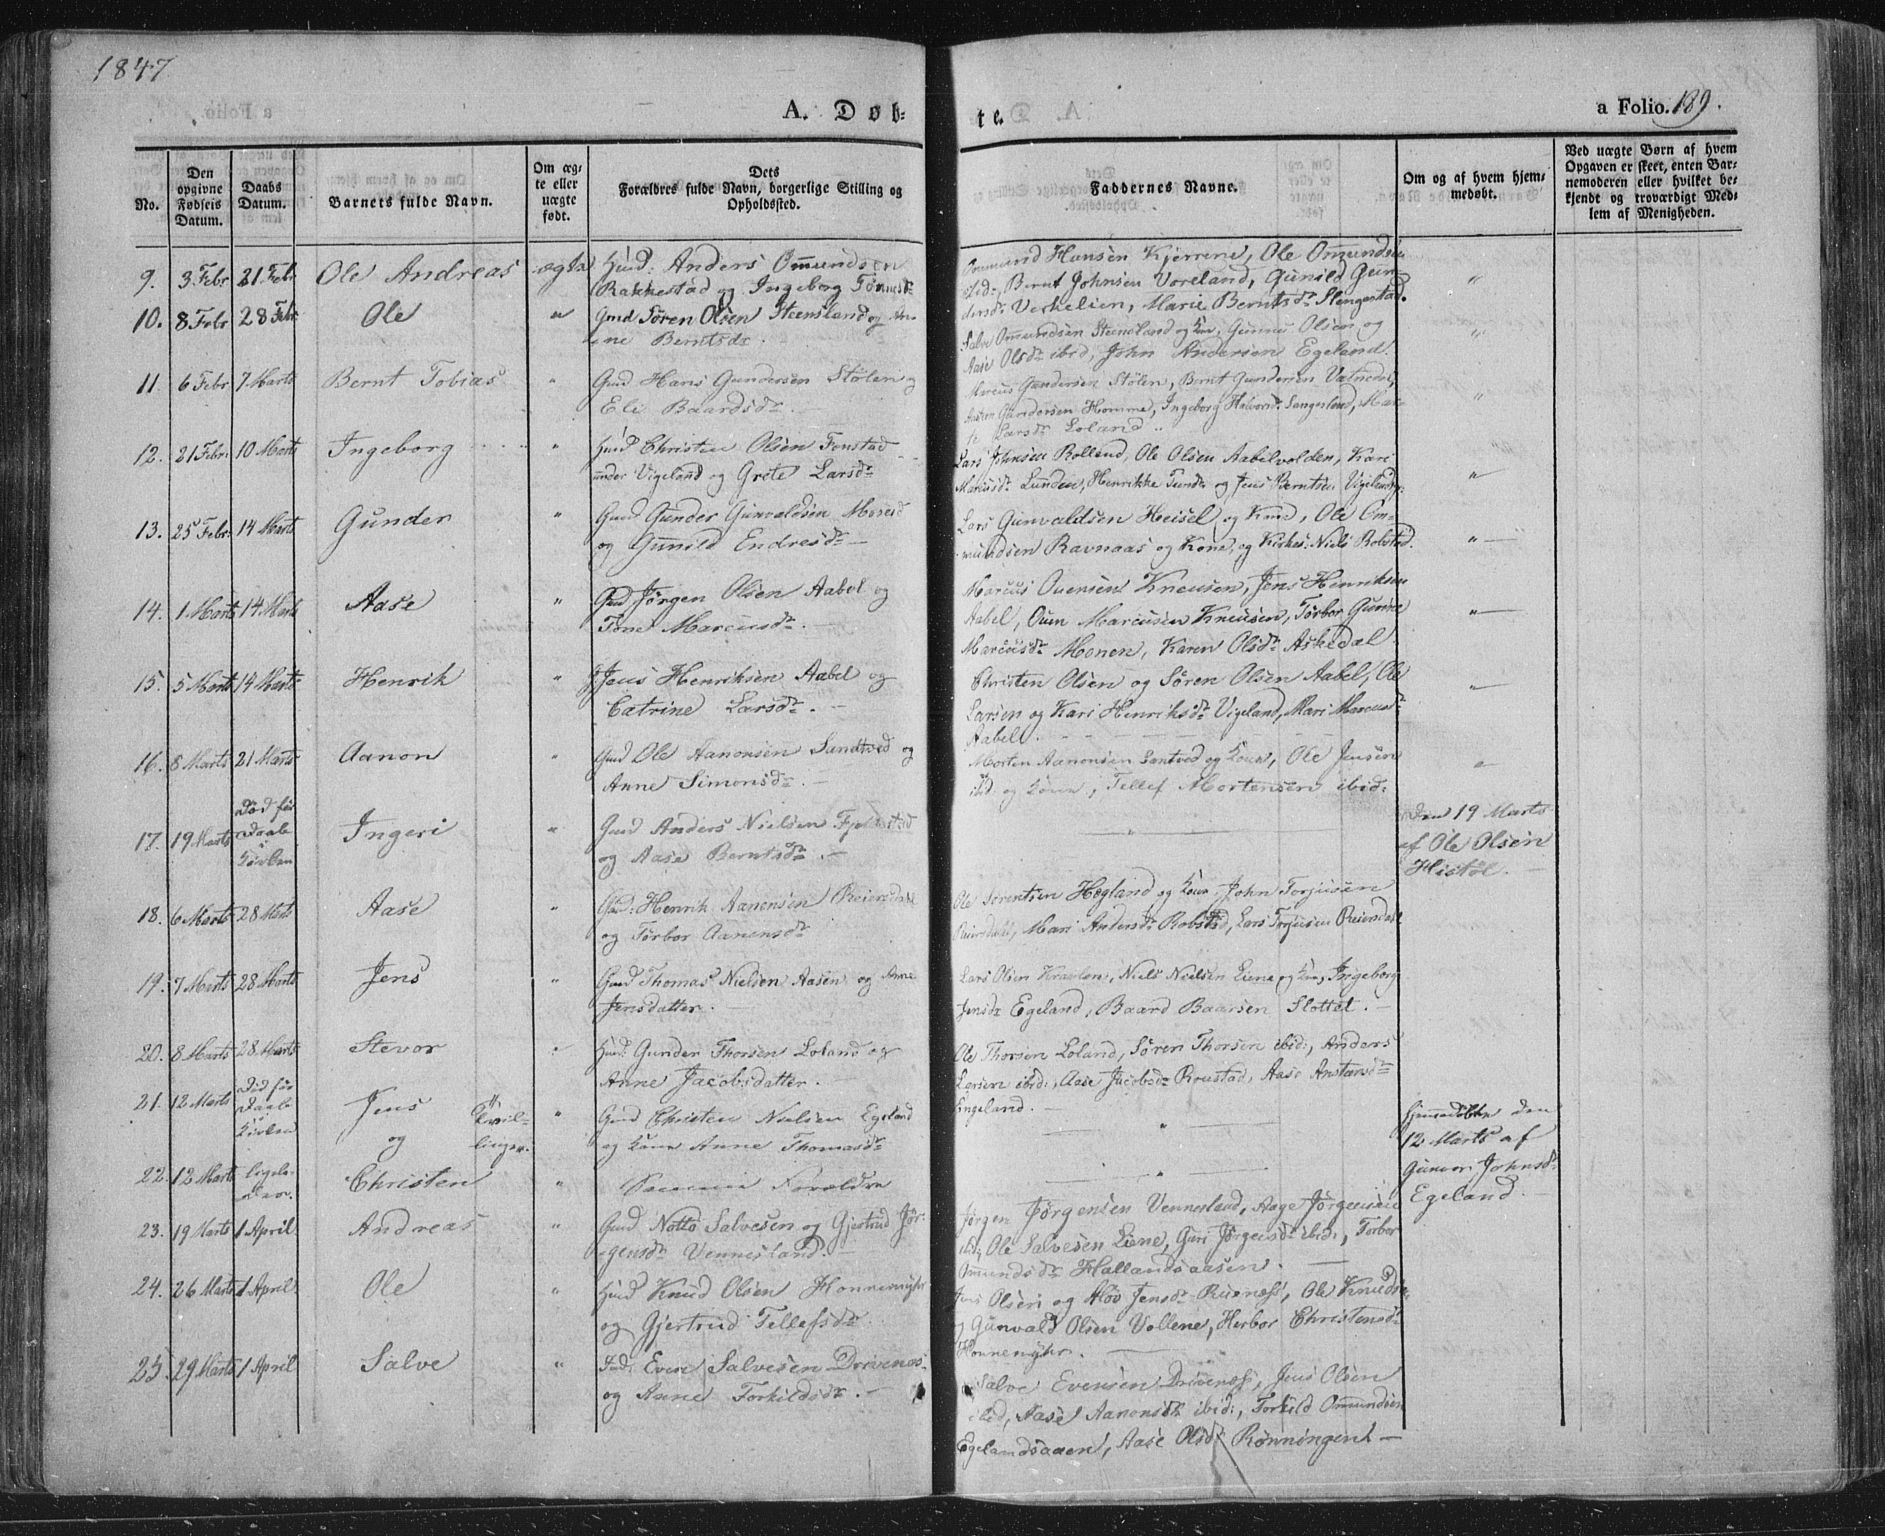 1847
A. Døb- te. a Folio. 189.
No. Den opgivne Fødsels Datum. Daabs Datum. Barnets fulde Navn. Om ægte eller uægte født. Dets Forældres fulde Navn, borgerlige Stilling og Opholdssted. Faddernes Navne. Om og af hvem hjemmedøbt. Ved uægte Børn af hvem Opgaven er skeet, enten Barnemoderen eller hvilket bekjendt og troværdigt Medlem af Menigheden.
9. 3 Febr 21 Febr Ole Andreas ægte Huusm: Anders Omundsen
Rakkestad og Ingeborg
Ommund Hansen Kjerrene, Ole Omundsen
ibid: Bernt Johnsen Voreland, Gunild Gun-
Verkelien, Marie Berntsdr Slengestad.
10. 8 Febr 28 Febr Ole " Gmd Søren Olsen Steensland og An-
ne Berntsdr.
Salve Omundsen Steensland og Kone, Gunnu Olsen og
Aase Olsdr ibid, John Andersen Egeland.
11. 6 Febr 7 Marts Bernt Tobias " Gmd Hans Gundersen Stølen og
Eli Baardsdr.
Marcus Gundersen Stølen, Bernt Gundersen Vatnedal,
Gundersen Homme, Ingeborg Halvorsdr Sangesland, Mar-
Larsdr Loland
12. 21 Febr: 10 Marts Ingeborg " Hmd Christen Olsen Fonstad
under Vigeland og Grete Larsdr
Lars Johnsen Rolland, Ole Olsen Aabelvolden, Kari
Marcusdr Lunden, Henrikke og Jens Berntsen Vigeland
13. 25 Febr: 14 Marts Gunder " Gmd Gunder Gunvaldsen Moseid
og Gunild Endresdr
Lars Gunvaldsen Heisel og Kone, Ole Om-
mundsen Ravnaas og Kone, og Niels Robstad.
14. 1 Marts 14 Marts Aase " Gmd Jørgen Olsen Aabel og
Tone Marcusdr.
Marcus Ouensen Kneusen, Jens Henriksen
Aabel, Oun Marcusen Kneusen, Torbor
Marcusdr Monen, Karen Olsdr Askedal
15. 5 Marts 14 Marts Henrik " Jens Henriksen Aabel og
Catrine Larsdr.
Christen Olsen og Søren Olsen Aabel, Ole
Larsen og Kari Henriksdr Vigeland, Mari Marcusdr
Aabel.
16. 8 Marts 21 Marts Aanon " Gmd Ole Aanonsen Sandtved og
Anne Simonsdr.
Morten Aanonsen Santved og Kone, Ole Jensen
ibid: og Kone, Tellef Mortensen ibid:
17. 19 Marts Død før Daab i Kirken Ingeri " Gmd Anders Nielsen
og Aase Berntsdr.
Den 19 Marts
af Ole Olsen
18. 6 Marts 28 Marts Aase " Gmd: Henrik Aanensen Reiersdahl
og Torbor Aanensdr
Ole Sørentsen Hægland og Kone, John Torjusen
Reiersdahl, Mari Andersdr Robstad, Lars Torjusen Reiersdal
19. 7 Marts 28 Marts Jens " Gmd Thomas Nielsen Aasen og Anne
Jensdatter.
Lars Olsen Kraalen, Niels Nielsen Liene og Kone, Ingeborg
Jensdr Egeland, Baard Baarsen Slottet.
20. 8 Marts 28 Marts Stevor " Hmd: Gunder Thorsen Loland og
Anne Jacobsdatter.
Ole Thorsen Loland, Søren Thorsen ibid:, Anders
Larsen ibid:, Aase Jacobsdr Roustad, Aase Anstensdr
Engeland.
21. 12 Marts Død før Daab i Kirken Jens og Tvillinger. " Gmd Christen Nielsen Egeland
og Kone Anne Thomasdr
Hjemmedøbte den
12 Marts af
Gunvor Johnsdr
Egeland.
22. 12 Marts ligele- Christen " Samme Forældre
23. 19 Marts 1 April Andreas " Gmd Notto Salvesen og Gjertrud Jør-
gensdr Vennesland.
Jørgen Jørgensen Vennesland, Aage Jørgensen
ibid, Ole Salvesen Liene, Guri Jørgensdr ibid:, Torbor
Omundsdr Hallandsaasen.
24. 26 Marts 1 April Ole " Hmd Knud Olsen Honnemyhr
og Gjertrud Tellefsdr.
Jens Olsen og Aløv Jensdr Ruenæs, Ole Knudsen
og Gunvald Olsen Vollene, Herbor Christensdr
Honnemyhr.
25. 29 Marts 1 April Salve " Even Salvesen Drivenæs
og Anne Torkildsdr.
Salve Evensen Drivenæs, Jens Olsen
ibid, Aase Aanonsdr ibid:, Torkild Ommundsen
Egelandsaaen, Aase Olsdr Rønningen